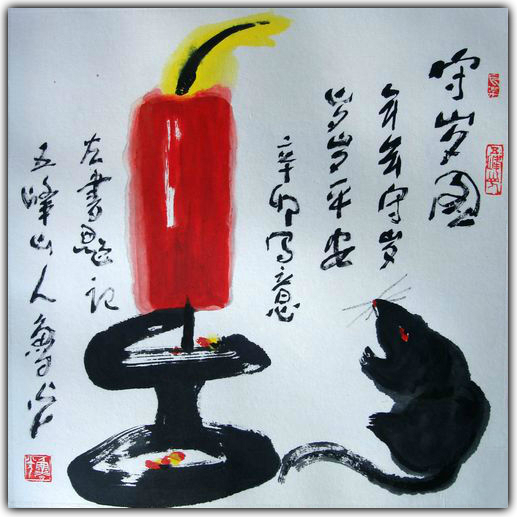 守岁图
年年守岁
岁岁平安
辛卯写意
左书题记
五峰山人